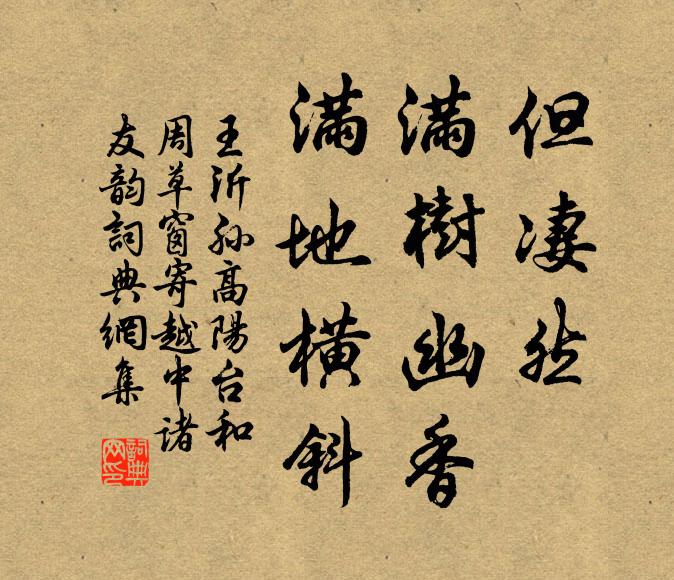 但凄然
滿樹幽香
滿地橫斜
王沂孙高陽台和
周草窗寄越中诸
友韵詞典網集
詞典网印